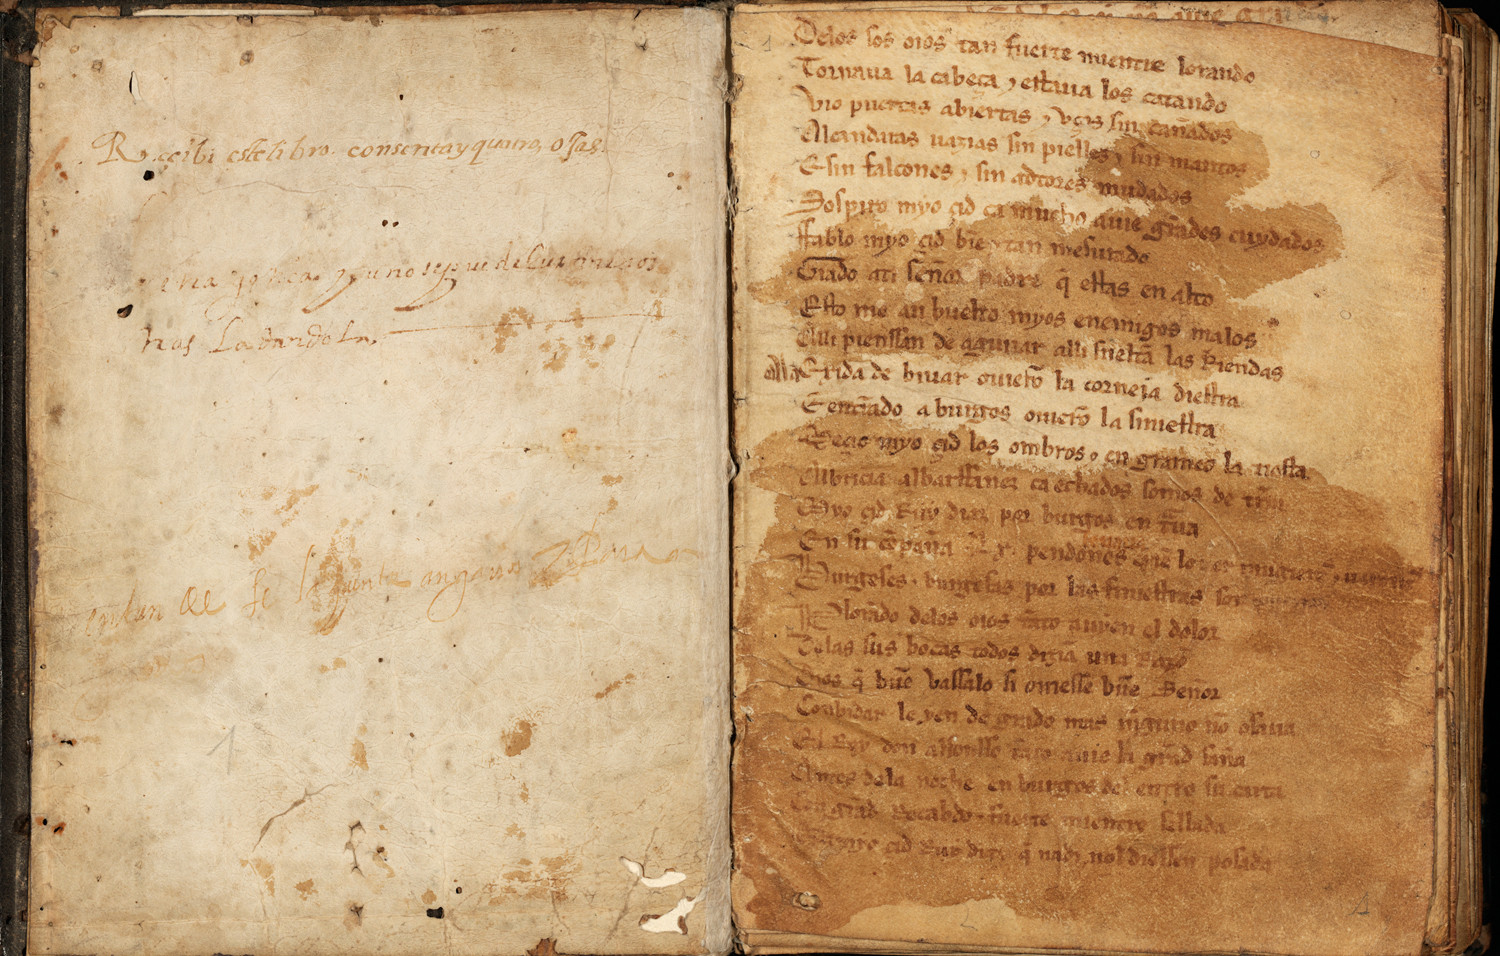 Recibi este libro con sesenta y quatro ojas
has La dandola
1
Delos sos oios tan fuerte mientre lorando
Tornaua la cabeça ⁊ estaua los catando
Vio puertas abiertas ⁊ vços sin cañados
Alcandaras uazias sin pielles ⁊ sin mantos
E sin falcones ⁊ sin adtores mudados
Sospiro myo çid ca mucho auie grãdes cuydados
Ffablo myo çid biẽ ⁊ tan mesurado
Grado ati señor padre q̃ estas en alto
Esto me an buelto myos enemigos malos
Alli pienssan de aguiiar alli sueltã las Riendas
Ala Exida de biuar ouierõ la corneia diestra
E entrãdo a burgos ouierõ la siniestra
Meçio myo çid los ombros ⁊ en grameo la tiesta
Albricia albarffanez ca echados somos de tr̃ra
Myo çid Ruy diaz por burgos en traua
En su cõpaña .Lx. pendones
Burgeses ⁊ burgesas por las finiestras son
Plorãdo delos oios tãto auyen el dolor
Delas sus bocas todos diziã una Razõ
Dios q̃ buẽ vassalo si ouiesse buẽ Señor
Conbidar le yen de grado mas nĩguno nõ osaua
El Rey don alfonsso tãto auie la grãd saña
Antes dela noche en burgos del entro su carta
Con grãd Recabdo ⁊ fuerte mientre sellada
Que a myo çid Ruy diaz q̃ nadi nol diessen posada